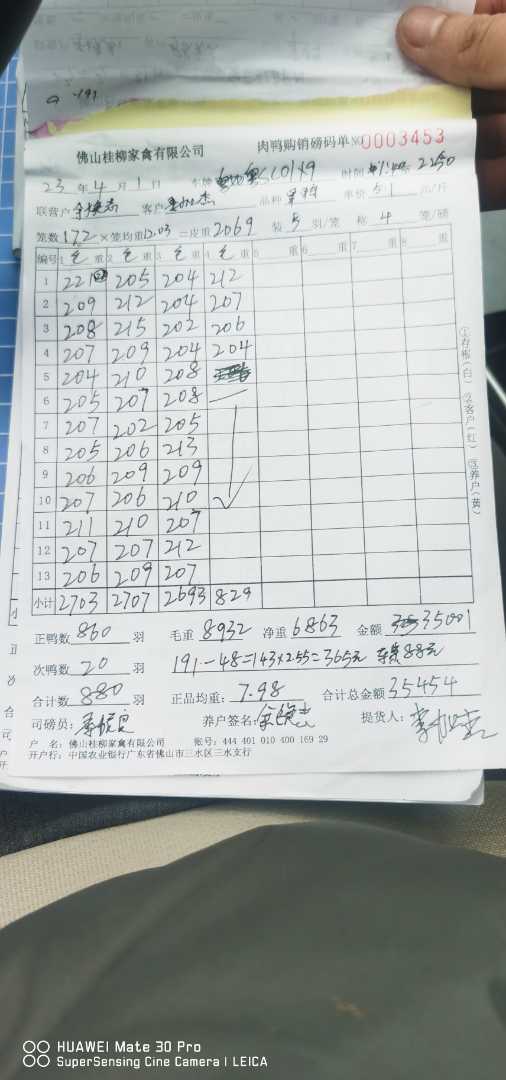 佛山桂柳家禽有限公司 肉鸭购销磅码单 №0003453
23年4月1日 车牌 时间
联营户 客户 品种 单价5.1元/斤
笼数172×笼均重12.03=皮重2069 装5羽/笼 称4笼/磅
编号 1 毛重 2 毛重 3 毛重 4 毛重 5 重 6 重 7 重 8 重
1 221 205 204 212
2 209 212 204 207
3 208 215 202 206
4 207 209 204 204
5 204 210 208
6 205 207 208
7 207 202 205
8 205 206 213
9 206 209 209
10 207 206 210
11 211 210 207
12 207 207 212
13 206 209 207
小计 2703 2707 2693 829
①存根(白) ②客户(红) ③养户(黄)
正鸭数860羽 毛重8932 净重6863 金额35001
次鸭数20羽 191-48=143×2.55=365元 88元
合计数880羽 正品均重:7.98 合计总金额35454
司磅员: 养户签名: 提货人:
户 名:佛山桂柳家禽有限公司 账号:444 401 010 400 169 29
开户行:中国农业银行广东省佛山市三水区三水支行
HUAWEI Mate 30 Pro
SuperSensing Cine Camera | LEICA